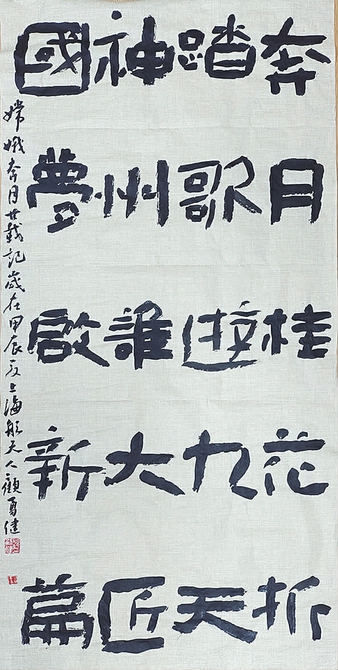 奔月桂花折
踏歌遊九天
神州誰大匠
國夢啟新篇
嫦娥奔月廿載記歲在甲辰夏上海航天人顧勇健